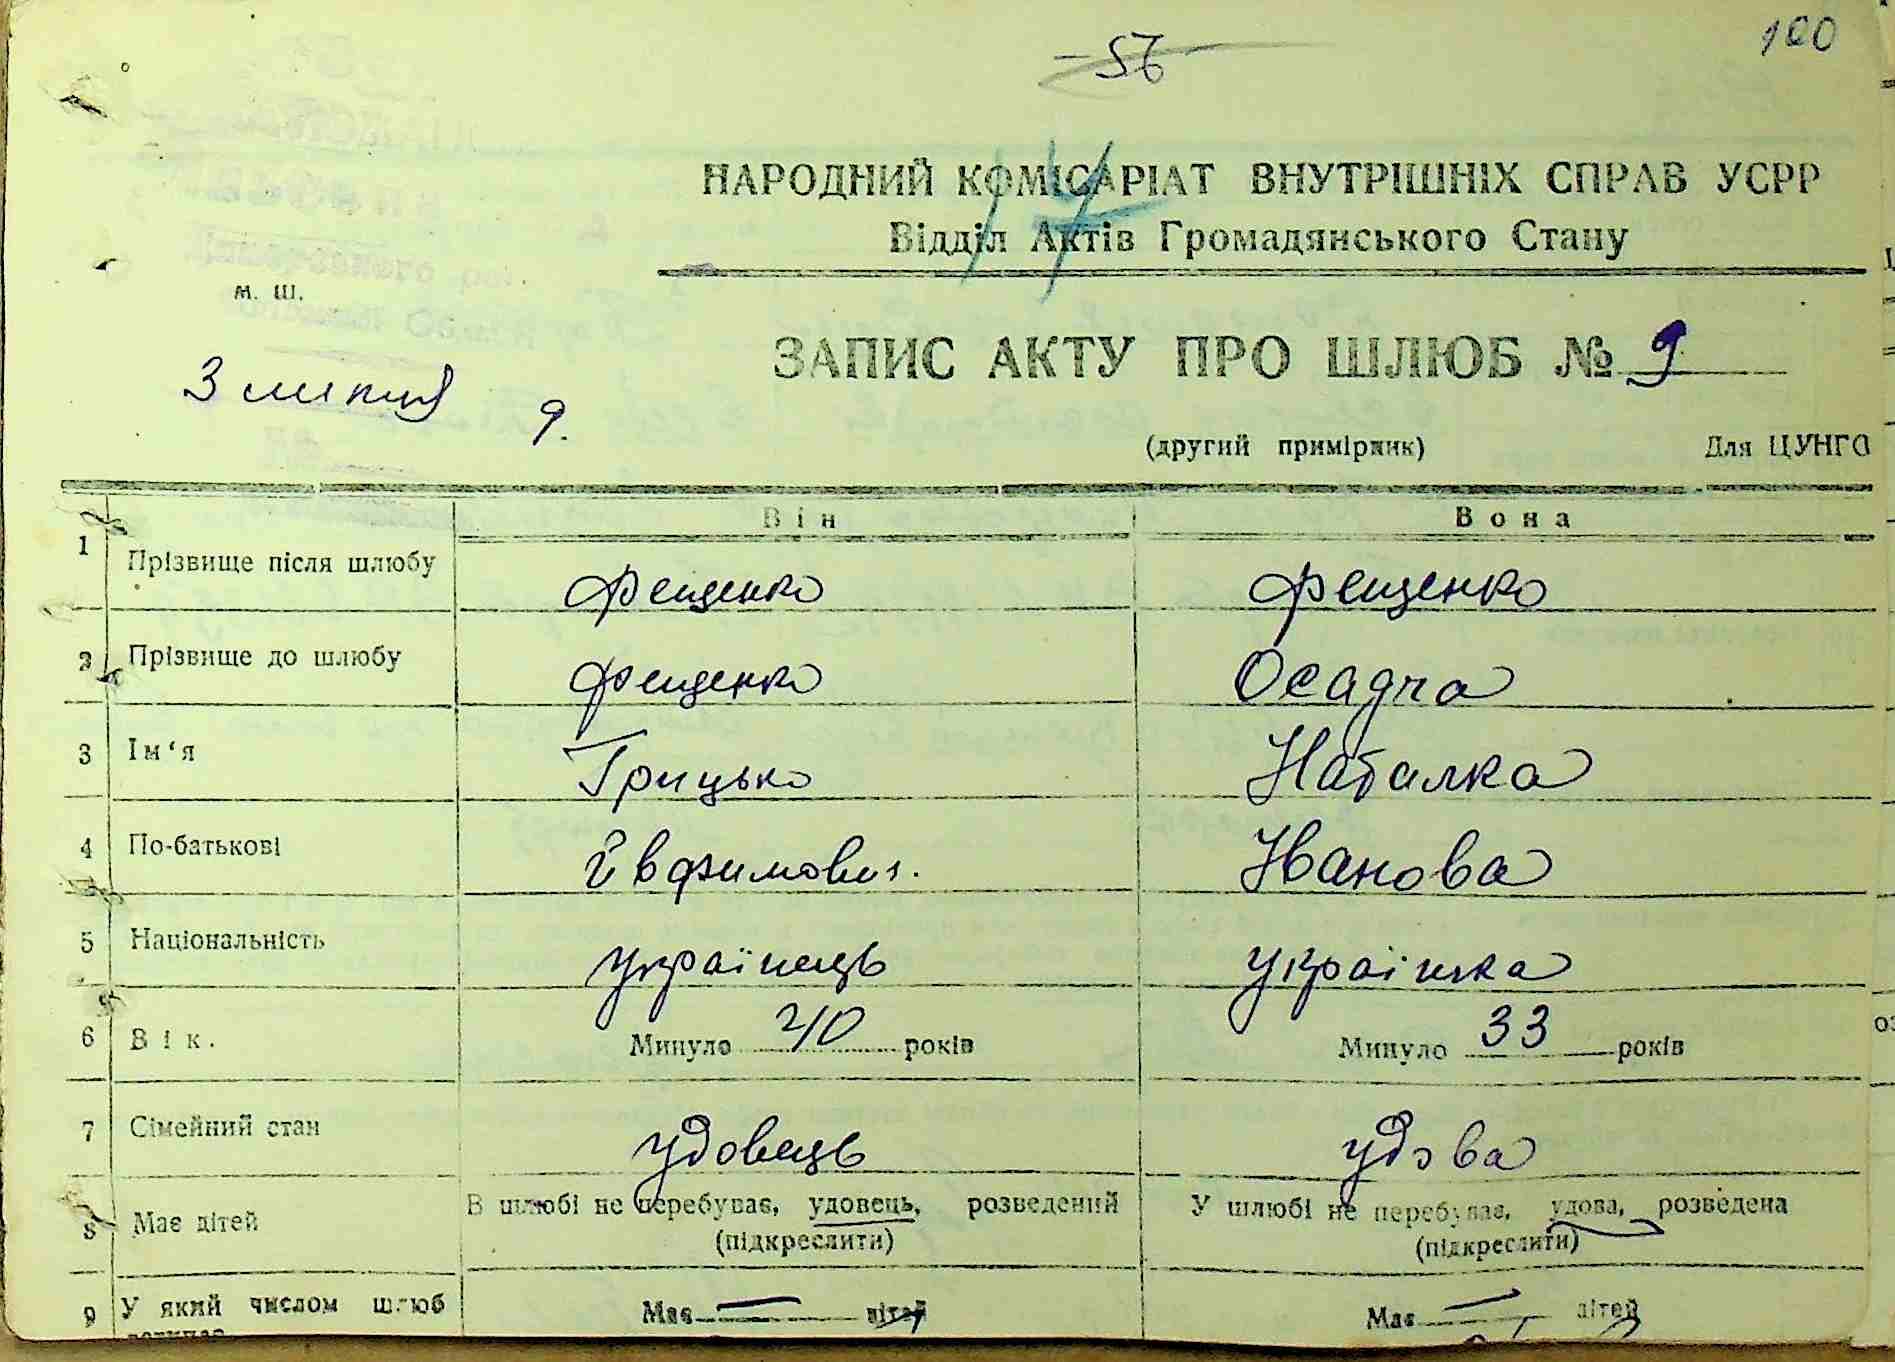 100
56
14
НАРОДНИЙ КОМІСАРІАТ ВНУТРІШНІХ СПРАВ УСРР
Відділ Актів Громадянського Стану
м. Ш.
ЗАПИС АКТУ ПРО ШЛЮБ № 9
3 липня 9.
(другий примірник) Для ЦУНГО
Він Вона
1 Прізвище після шлюбу Фещенко Фещенко
2 Прізвище до шлюбу Фещенко Осадча
3 Ім‘я Грицько Наталка
4 По-батькові Йвфимович. Іванова
5 Національність українець українка
6 Вік. Минуло 40 років Минуло 33 років
7 Сімейний стан удовець удова
В шлюбі не перебуває, удовець, розведений У шлюбі не перебуває, удова, розведена
8 Має дітей (підкреслити) (підкреслити)
9 У який числом шлюб Має — дітей Має — дітей